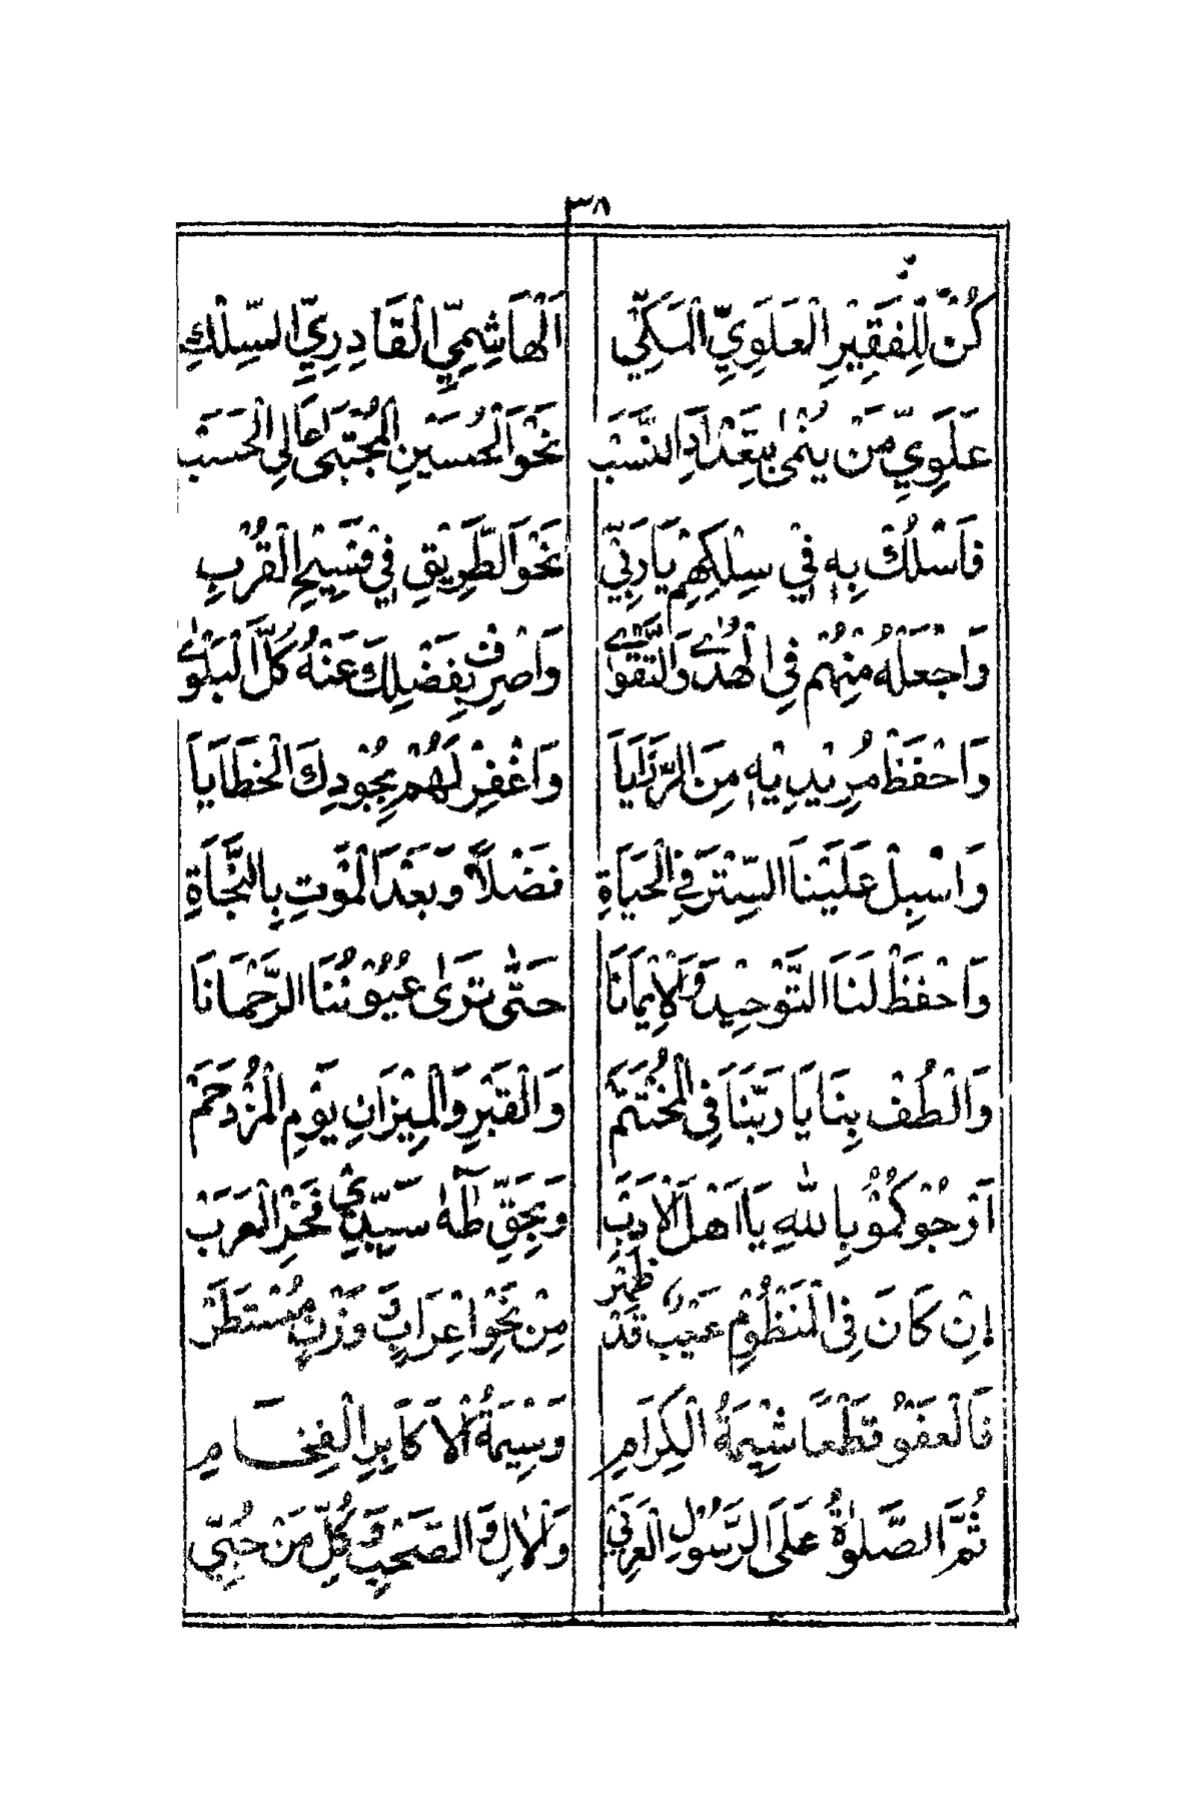 ٣٨
كُنْ لِلْفَقِيْرِ الْعَلَوِيِّ الْمَكِّيْ اَلْهَاشِمِيِّ الْقَادِرِيِّ السِّلْكِ
عَلَوِيِّ مَنْ يُنْمٰى بِتَعْدَادِ النَّسَبْ نَحْوَ الْحُسَيْنِ الْمُجْتَبٰى عَالِي الْحَسَبْ
فَاسْلُكْ بِهِ فِيْ سِلْكِهِمْ يَا رَبِّيْ نَحْوَ الطَّرِيْقِ فِيْ فَسِيْحِ الْقُرْبِ
وَاجْعَلْهُ مِنْهُمْ فِى الْهُدٰى وَالتَّقْوٰى وَاصْرِفْ بِفَضْلِكَ عَنْهُ كُلَّ الْبَلْوٰى
وَاحْفَظْ مُرِيْدِيْهِ مِنَ الرَّزَايَا وَاغْفِرْ لَهُمْ بِجُوْدِكَ الْخَطَايَا
وَاسْبِلْ عَلَيْنَا السِّتْرَ فِى الْحَيَاةِ فَضْلًا وَبَعْدَ الْمَوْتِ بِالنَّجَاةِ
وَاحْفَظْ لَنَا التَّوْحِيْدَ وَالْاِيْمَانَا حَتّٰى تَرٰى عُيُوْنُنَا الرَّحْمَانَا
وَالْطُفْ بِنَا يَا رَبَّنَا فِى الْمُخْتَتَمْ وَالْقَبْرِ وَالْمِيْزَانِ يَوْمِ الْمُزْدَحَمْ
اَرْجُوْكُمُوْ بِاللّٰهِ يَا اَهْلَ الْاَدَبْ وَبِحَقِّ طٰهٰ سَيِّدِيْ فَخْرِ الْعَرَبْ
اِنْ كَانَ فِى الْمَنْظُوْمِ عَيْبٌ قَدْ ظَهَرْ مِنْ نَحْوِ اِعْرَابٍ وَوَزْنٍ مُسْتَطَرْ
فَالْعَفْوُ قَطْعًا شِيْمَةُ الْكِرَامِ وَسِيْمَةُ الْاَكَابِرِ الْفِخَامِ
ثُمَّ الصَّلٰوةُ عَلَى الرَّسُوْلِ الْعَرَبِيْ وَالْاٰلِ وَالصَّحْبِ وَكُلِّ مَنْ حُبِّيْ